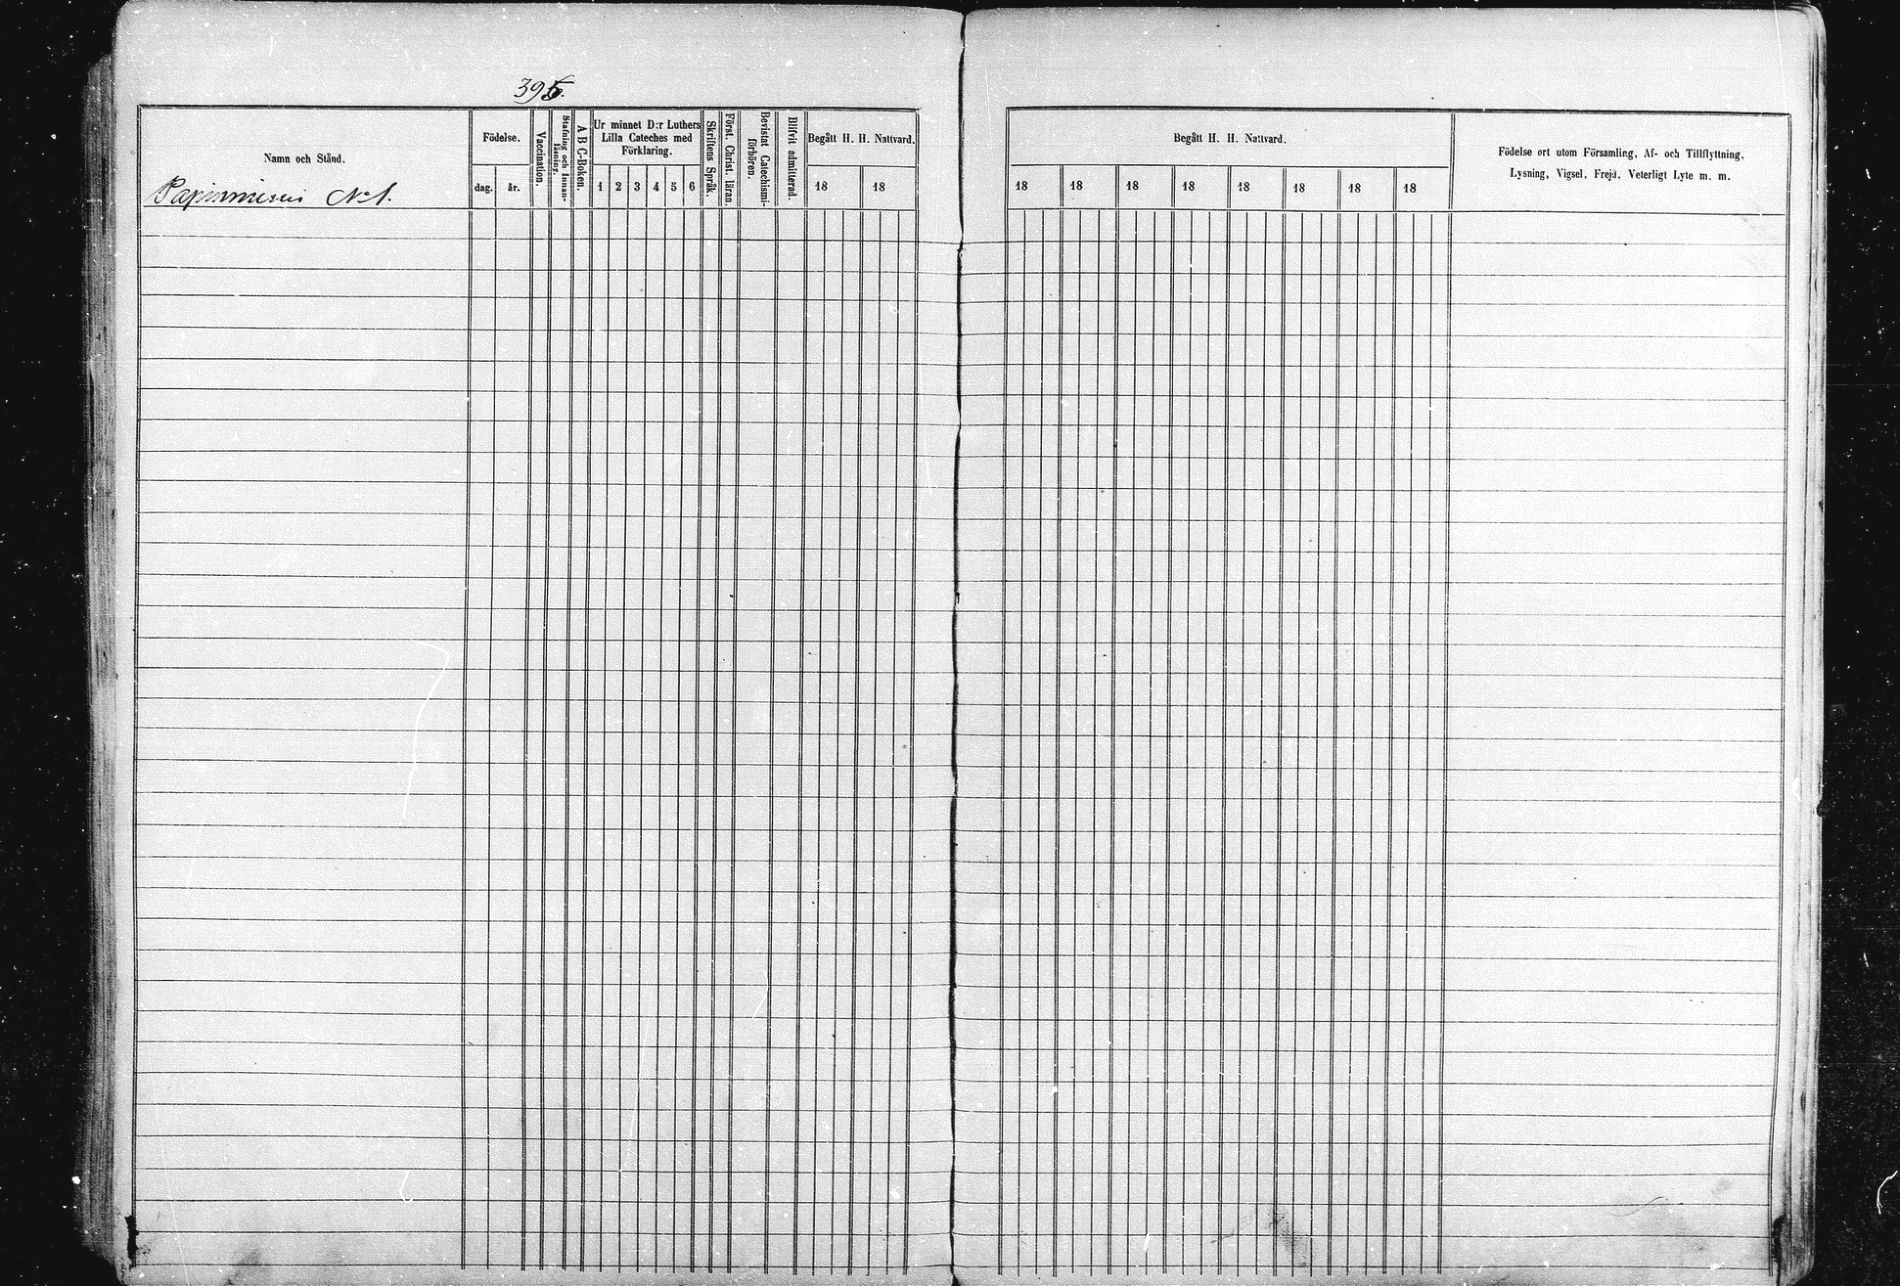 395.
Namn och Stånd.
Födelse.
dag. år.
Vaccination.
Stafning och Innan-
läsning.
A B C-Boken.
Ur minnet D:r Luthers
Lilla Cateches med
Förklaring.
1 2 3 4 5 6
Skriftens Språk.
Först. Christ. läran.
Bevistat Catechismi-
förhören.
Blifvit admitterad.
Begått H. H. Nattvard.
18 18
No 1.
Begått H. H. Nattvard.
18 18 18 18 18 18 18 18
Födelse ort utom Församling, Af- och Tillflyttning,
Lysning, Vigsel, Frejd, Veterligt Lyte m. m.